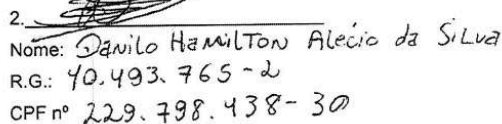 2.
Nome: Danilo Hamilton Alécio da Silva
R.G.: 40.493.765-2
CPF nº 229.798.438-30